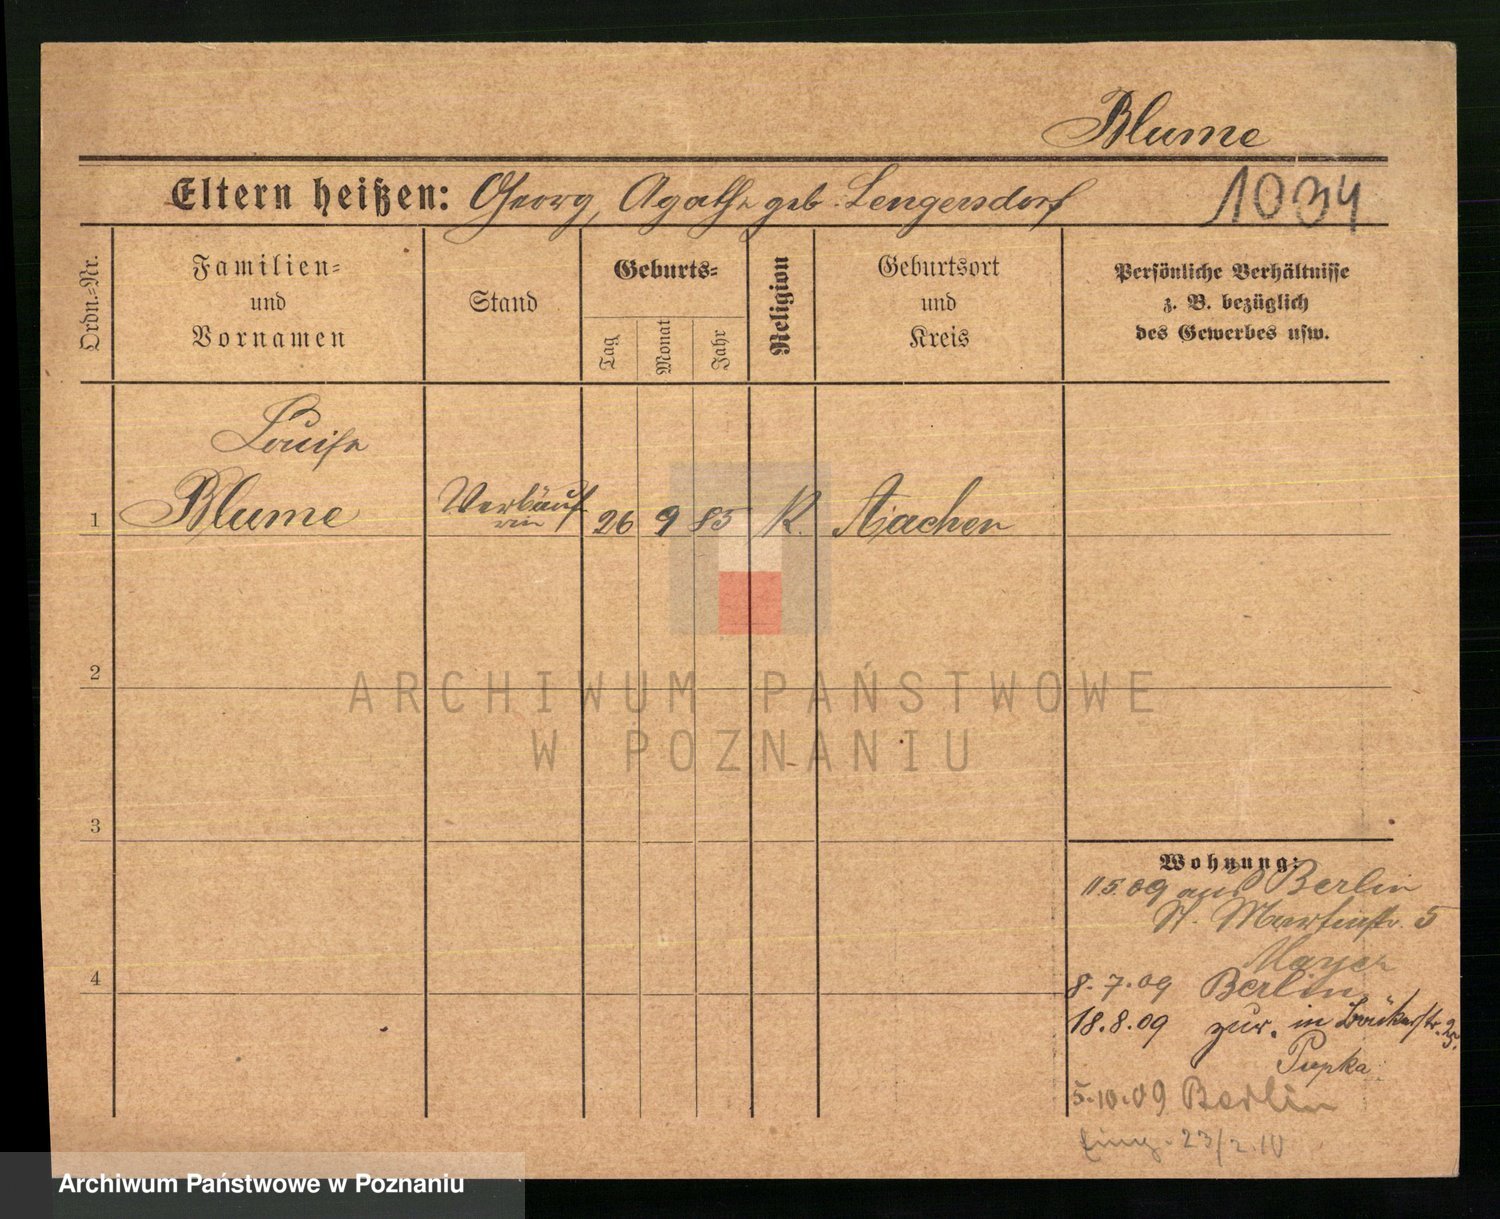 Blume
Eltern heißen: Georg, Agathe geb. Lengersdorf
1034
Ordn.-Nr.
Familien-
und
Vornamen
Stand
Geburts-
Tag
Monat
Jahr
Religion
Geburtsort
und
Kreis
Persönliche Verhältnisse
z. B. bezüglich
des Gewerbes usw.
Louise
1 Blume Verkäuf
rin
26 9 85 K. Aachen
2
3
4
Wohnung:
11.5.09 aus Berlin
St. Martinstr. 5
Mayer
8.7.09 Berlin
18.8.09 zur. in Bäckerstr. 25.
Pupka
5.10.09 Berlin
23/2.10
ARCHIWUM PAŃSTWOWE
W POZNANIU
Archiwum Państwowe w Poznaniu